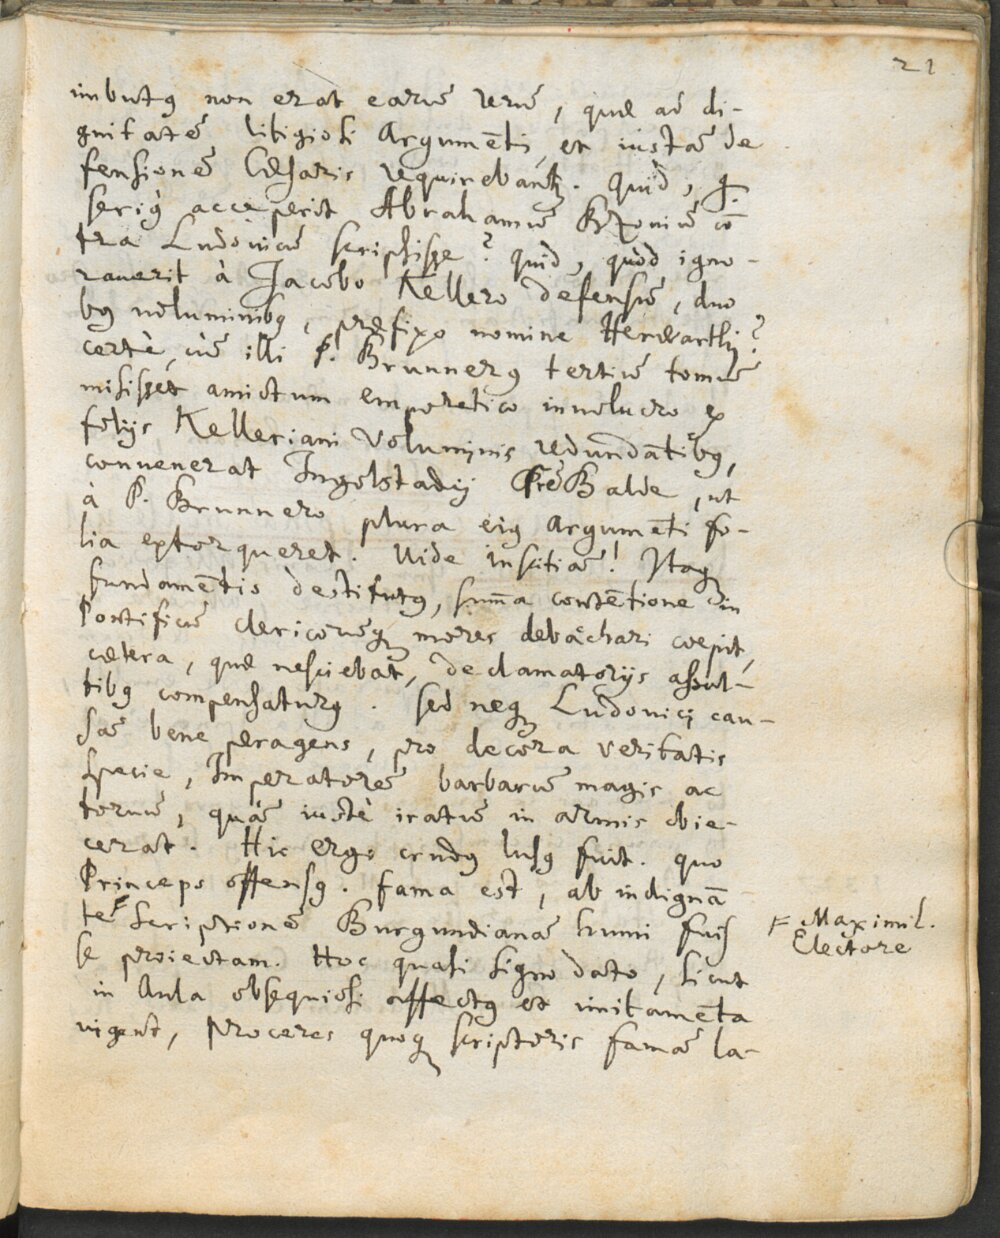 21
imbutꝰ non erat earū rerū, quæ ad di-
gnitatē litigiosi Argumēti, et iustā de
fensionē Cæsaris requirebantꝛ. Quid, ꝙ
seriꝰ acceperit Abrahamū Bzouiū cō
tra Ludouicū scripsisse? quid, quòd igno-
rauerit à Jacobo Kellero defensū, duo
bꝰ uoluminibꝰ, præfixo nomine Herwartij?
certè, cū illi P. Brunnerꝰ tertiū tomū
misisset amictum emporetico inuolucro ex
folijs Kelleriani Voluminis redundātibꝰ,
conuenerat Ingolstadij Pre Balde, ut
à P. Brunnero plura eiꝰ Argumēti fo-
lia extorqueret. Vide inscitiā! Itaqꝫ
fundamētis destitutꝰ, sum̄a contētione in
Pontificū clericorūqꝫ mores debàchari coepit,
cætera, quæ nesciebat, declamatorijs assul-
tibꝰ compensaturꝰ. sed neqꝫ Ludouici cau-
sā bene peragens, pro decora veritatis
specie, Imperatorē barbarū magis ac
toruū, quā iustè iratū in armis obie-
cerat. Hic ergo crudꝰ lusꝰ fuit. quo
Princeps offensꝰ. fama est, ab indignā
te ⹀ scriptionē Burgundianā humi fuis
se proiectam. Hoc quasi signo dato, sicut
in Aula obsequiosi affectꝰ et imitamēta
uigent, proceres quoqꝫ scriptoris famā la-
⹀ Maximil.
Electore